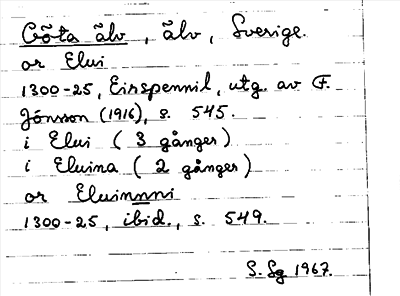 Göta älv, älv, Sverige.
or Elui
1300-25, Eirspennil, utg. av F.
Jónsson (1916), s. 545.
i Elui (3 gånger)
i Eluina (2 gånger)
or Eluinnni
1300-25, ibid., s. 549.
S. Sg 1967.